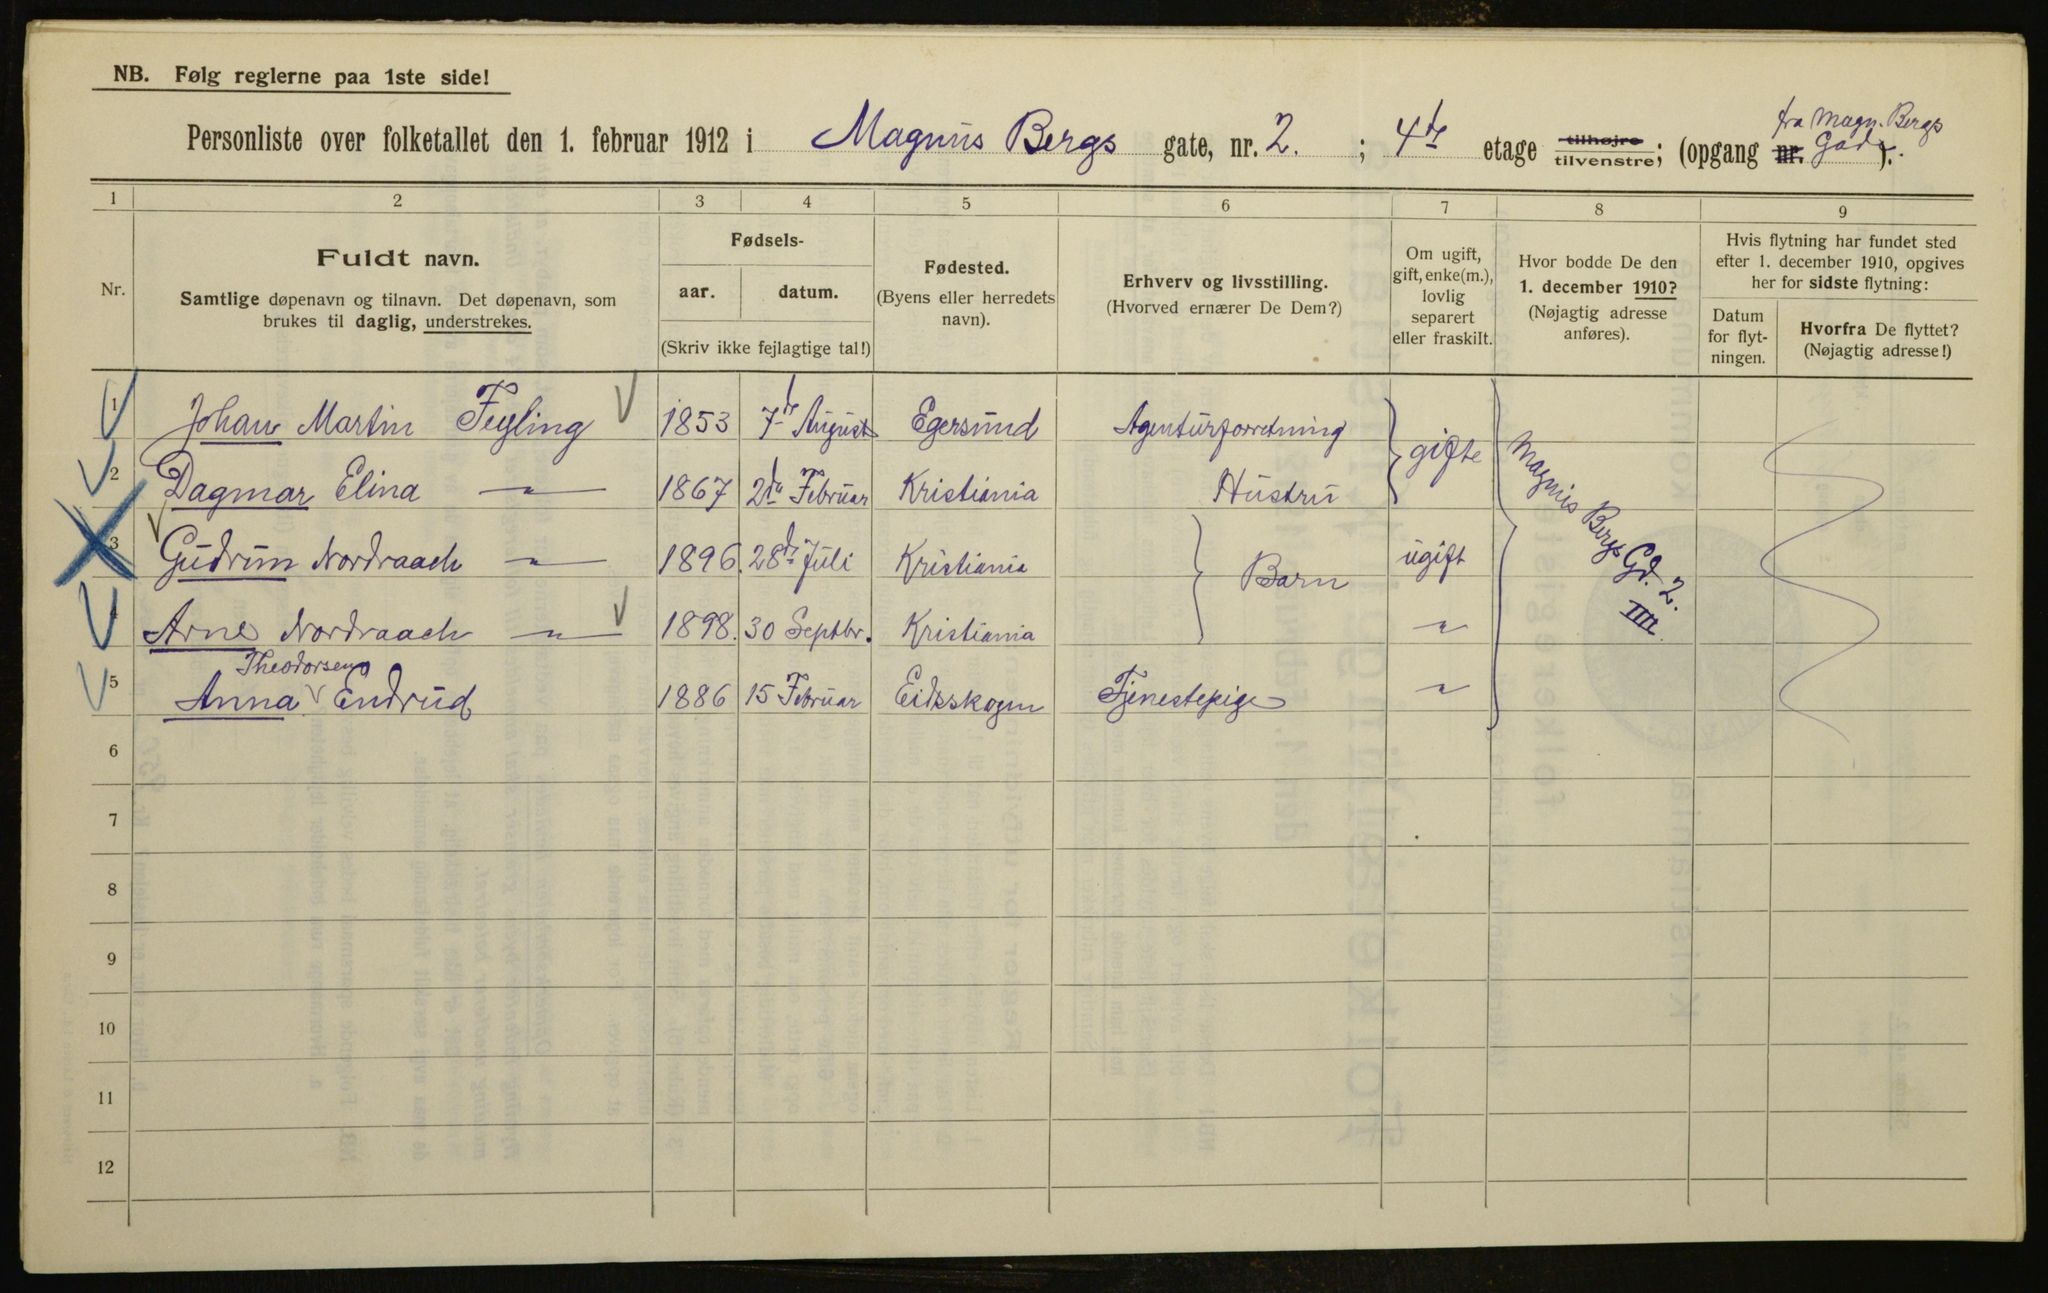 NB. Følg reglerne paa 1ste side!
fra Magn. Bergs
Personliste over folketallet den 1. februar 1912 i Magnus Bergs gate, nr. 2. ; 4de etage tilhøjre tilvenstre; (opgang nr. Gade).
1 2 3 4 5 6 7 8 9
Nr.
Fuldt navn.
Samtlige døpenavn og tilnavn. Det døpenavn, som
brukes til daglig, understrekes.
Fødsels-
aar. datum.
(Skriv ikke fejlagtige tal!)
Fødested.
(Byens eller herredets
navn).
Erhverv og livsstilling.
(Hvorved ernærer De Dem?)
Om ugift,
gift, enke(m.),
lovlig
separert
eller fraskilt.
Hvor bodde De den
1. december 1910?
(Nøjagtig adresse
anføres).
Hvis flytning har fundet sted
efter 1. december 1910, opgives
her for sidste flytning:
Datum
for flyt-
ningen.
Hvorfra De flyttet?
(Nøjagtig adresse!)
1 Johan Martin Feyling 1853 7de August Egersund Agenturforretning gifte
2 Dagmar Elina — " — 1867 2den Februar Kristiania Hustru
3 Gudrun Nordraach — " — 1896. 28de Juli Kristiania Barn ugift
4 Arne Nordraach — " — 1898. 30 Septbr. Kristiania "
Theodorsen
5 Anna Endrud 1886 15 Februar Eidsskogen Tjenestepige "
Magnus Bergs Gd. 2.
IIII
6
7
8
9
10
11
12